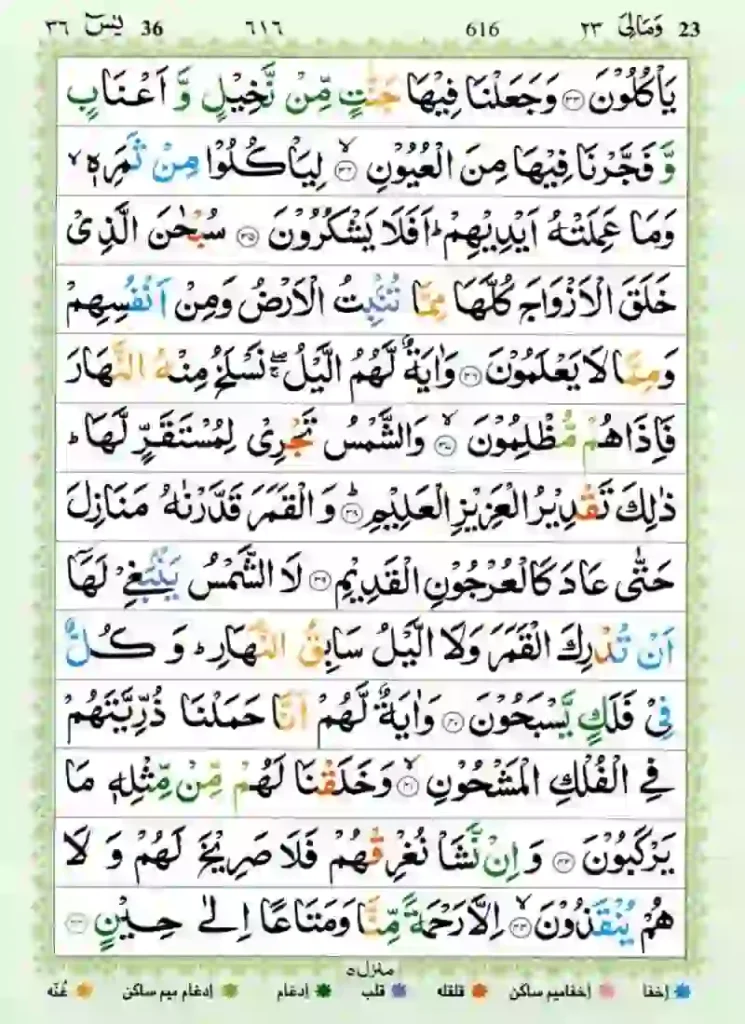 23 وَمَالِیَ ۲۳ 616 ٦١٦ 36 یٰسٓ ۳۶
يَاْكُلُوْنَ ﴿۳۳﴾ وَجَعَلْنَا فِيْهَا جَنّٰتٍ مِّنْ نَّخِيْلٍ وَّ اَعْنَابٍ
وَّ فَجَّرْنَا فِيْهَا مِنَ الْعُيُوْنِ ۙ﴿۳۴﴾ لِيَاْكُلُوْا مِنْ ثَمَرِهٖ ۙ
وَمَا عَمِلَتْهُ اَيْدِيْهِمْ ؕ اَفَلَا يَشْكُرُوْنَ ﴿۳۵﴾ سُبْحٰنَ الَّذِىْ
خَلَقَ الْاَزْوَاجَ كُلَّهَا مِمَّا تُنْۢبِتُ الْاَرْضُ وَمِنْ اَنْفُسِهِمْ
وَمِمَّا لَا يَعْلَمُوْنَ ﴿۳۶﴾ وَاٰيَةٌ لَّهُمُ الَّيْلُ ۖۚ نَسْلَخُ مِنْهُ النَّهَارَ
فَاِذَا هُمْ مُّظْلِمُوْنَ ۙ﴿۳۷﴾ وَالشَّمْسُ تَجْرِىْ لِمُسْتَقَرٍّ لَّهَا ؕ
ذٰلِكَ تَقْدِيْرُ الْعَزِيْزِ الْعَلِيْمِ ؕ﴿۳۸﴾ وَ الْقَمَرَ قَدَّرْنٰهُ مَنَازِلَ
حَتّٰى عَادَ كَالْعُرْجُوْنِ الْقَدِيْمِ ﴿۳۹﴾ لَا الشَّمْسُ يَنْۢبَغِىْ لَهَاۤ
اَنْ تُدْرِكَ الْقَمَرَ وَلَا الَّيْلُ سَابِقُ النَّهَارِ ؕ وَ كُلٌّ
فِىْ فَلَكٍ يَّسْبَحُوْنَ ﴿۴۰﴾ وَاٰيَةٌ لَّهُمْ اَنَّا حَمَلْنَا ذُرِّيَّتَهُمْ
فِى الْفُلْكِ الْمَشْحُوْنِ ۙ﴿۴۱﴾ وَخَلَقْنَا لَهُمْ مِّنْ مِّثْلِهٖ مَا
يَرْكَبُوْنَ ﴿۴۲﴾ وَ اِنْ نَّشَاْ نُغْرِقْهُمْ فَلَا صَرِيْخَ لَهُمْ وَ لَا
هُمْ يُنْقَذُوْنَ ۙ﴿۴۳﴾ اِلَّا رَحْمَةً مِّنَّا وَمَتَاعًا اِلٰى حِيْنٍ ﴿۴۴﴾
منزل ۵
اِخفا اِخفامیم ساکن قلقله قلب اِدغام اِدغام میم ساکن غُنّه